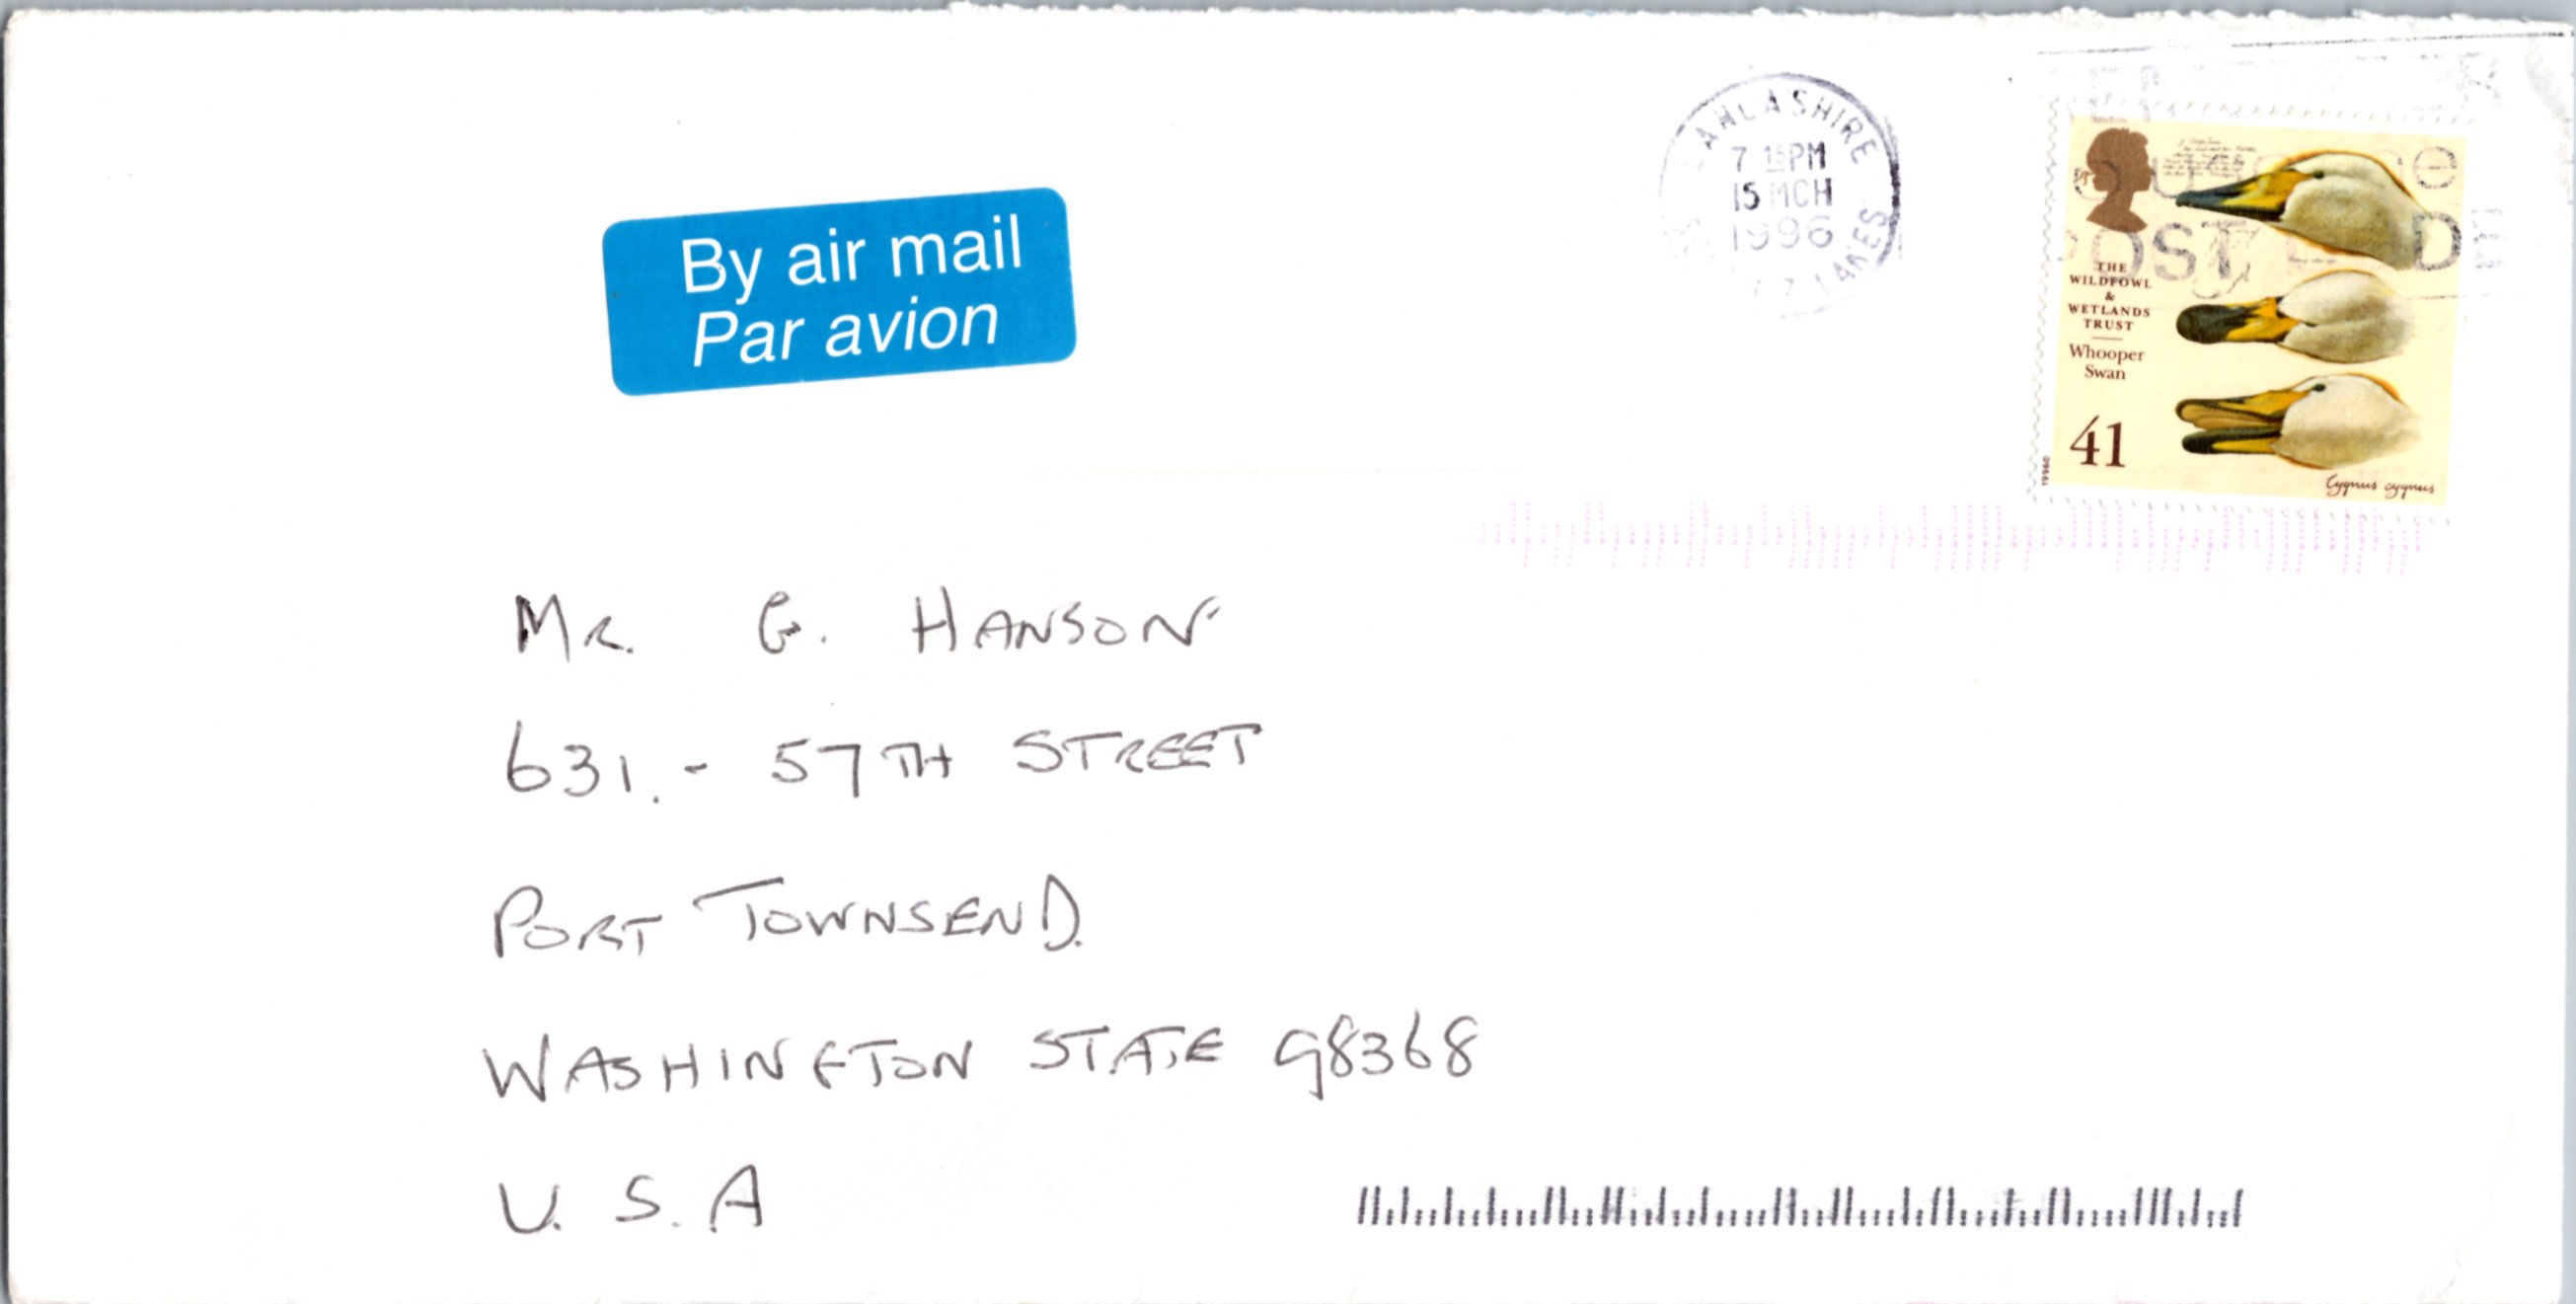 By air mail
Par avion
LANCASHIRE
7 15PM
15 MCH
1996
LAKES
THE
WILDFOWL
&
WETLANDS
TRUST
Whooper
Swan
41
Cygnus cygnus
1996
POST
MR. G. HANSON
631. - 57TH STREET
PORT TOWNSEND.
WASHINGTON STATE 98368
U. S. A